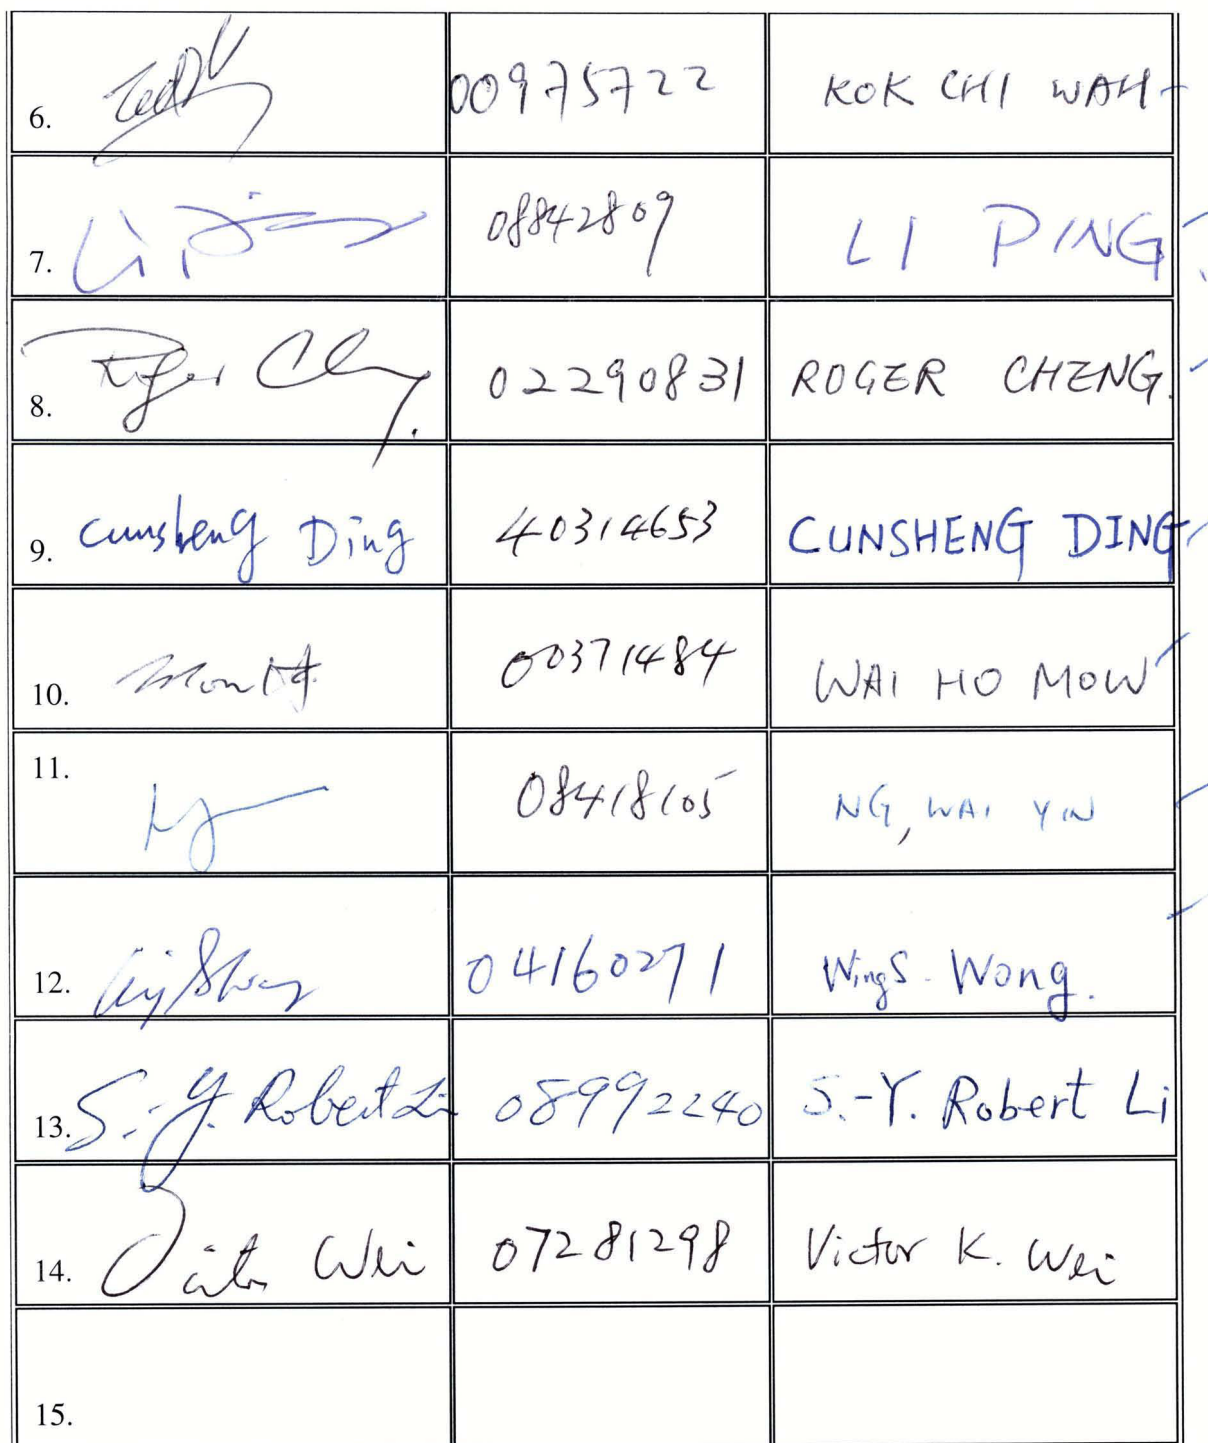 6. 00975722 KOK CHI WAH
7. Li Ping 08842809 LI PING
8. Roger Cheng 02290831 ROGER CHENG.
9. Cunsheng Ding 40314653 CUNSHENG DING
10. Mow 00371484 WAI HO MOW
11. 08418105 NG, WAI YIN
12. 04160271 Wing S. Wong.
13. S.-Y. Robert Li 08992240 S.-Y. Robert Li
14. Victor Wei 07281298 Victor K. Wei
15.